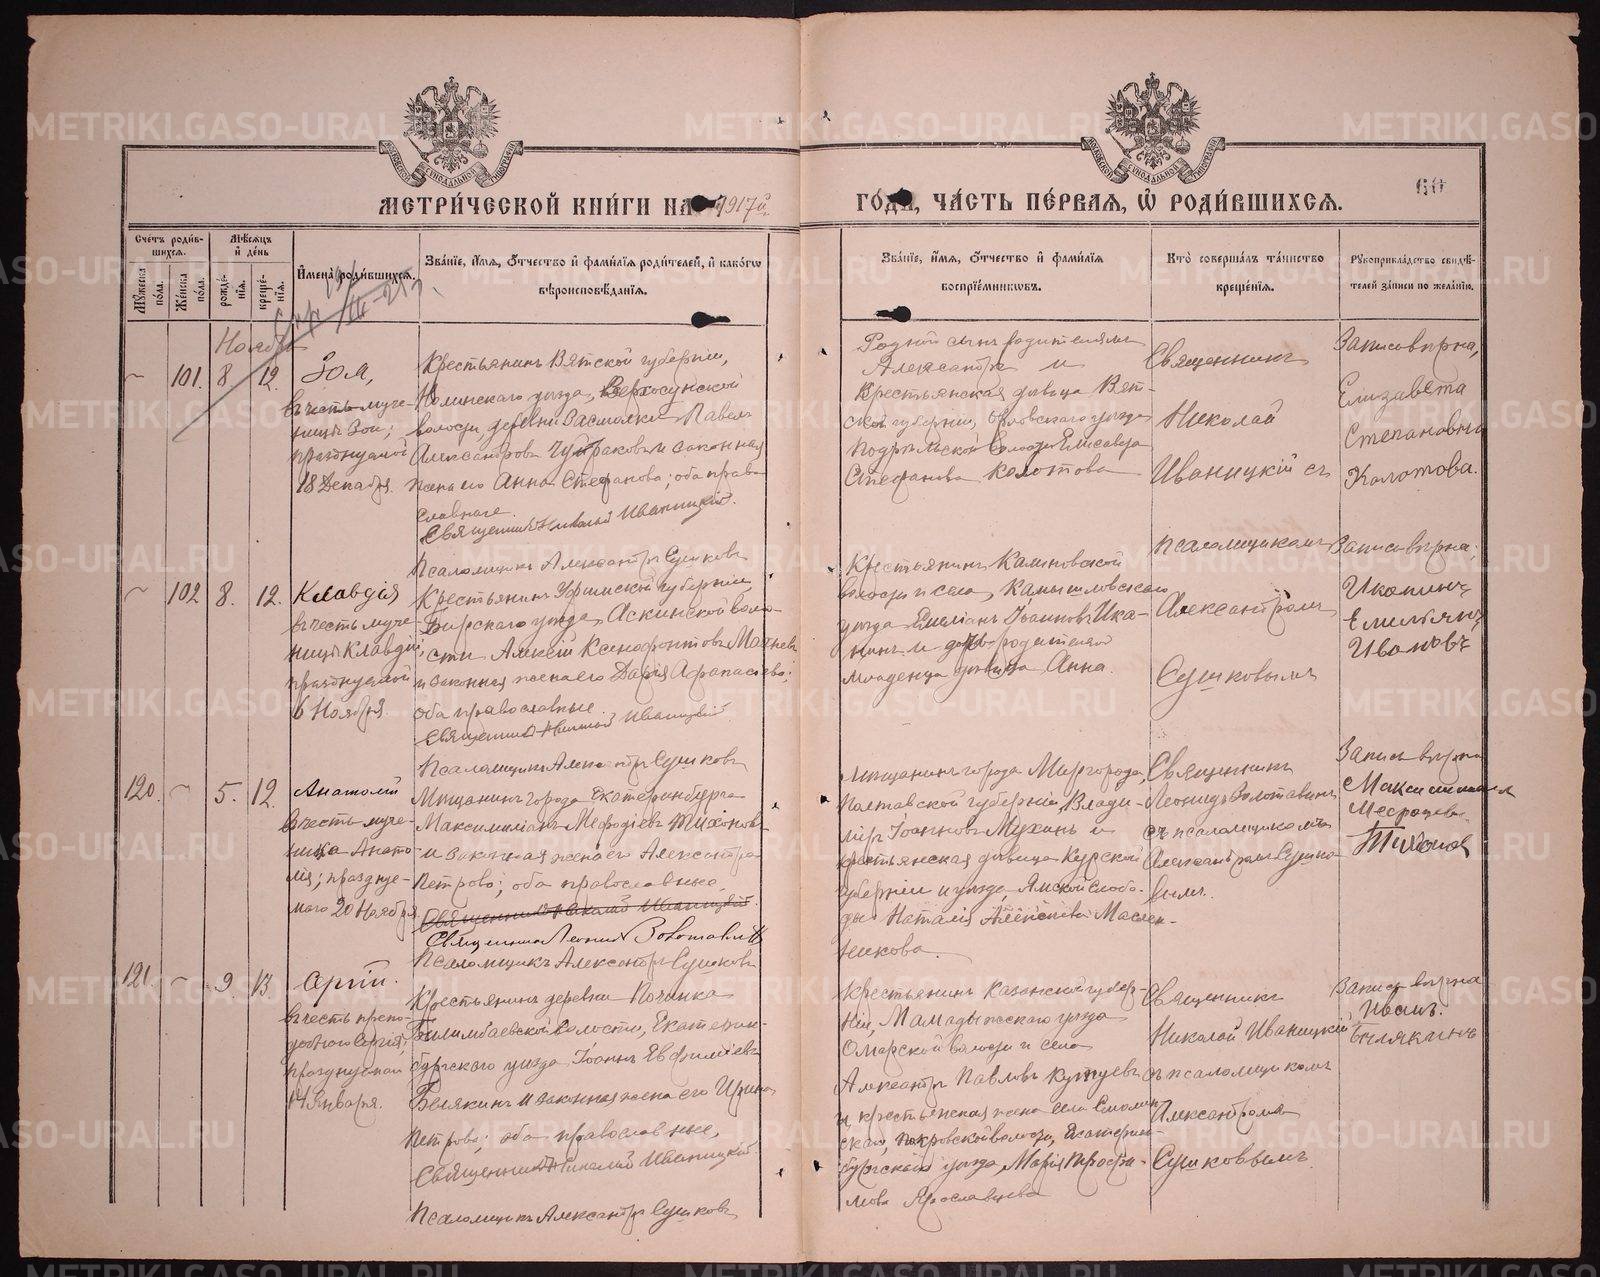 МЕТРИ́ЧЕСКОЙ КНИ́ГИ НА 1917й
ГОДЪ, ЧА́СТЬ ПЕ́РВАЯ, Ѡ РОДИ́ВШИХСЯ.
60
Сче́тъ роди́в-
шихся.
Му́жеска по́ла.
Же́нска по́ла.
Мѣ́сяцъ и҆ де́нь
рожде́-
нїѧ.
креще́-
нїѧ.
И҆мена̀ роди́вшихся.
Зва́нїе, и҆́мѧ, ѻ҆́тчество и҆ фами́лїѧ роди́телей, и҆ како́гѡ
вѣроисповѣ́данїѧ.
Зва́нїе, и҆́мѧ, ѻ҆́тчество и҆ фами́лїѧ
воспрїе́мникѡвъ.
Кто̀ соверша́лъ та́инство
креще́нїѧ.
Рꙋкоприкла́дство свидѣ́-
телей за́писи по жела́нїю.
Ноябрь
101. 8 12.
Зоя,
въ честь муче-
ницы Зои;
празднуемой
18 Декабря.
Крестьянинъ Вятской губерніи,
Нолинскаго уѣзда, Верхосунской
волости, деревни Павелъ
Александровъ и законная
жена его Анна Стефанова; оба право-
славные.
Священникъ Николай Иваницкій.
Псаломщикъ Александръ Сушковъ
Родной сынъ родителямъ
Александръ и
Крестьянская дѣвица Вят-
ской губерніи, Орловскаго уѣзда
волости Елисавета
Стефанова Колотова
Священникъ
Николай
Иваницкій съ
псаломщикомъ
Александромъ
Сушковымъ
Запись вѣрна,
Елизавета
Степановна
Колотова.
102 8. 12.
Клавдія
въ честь муче-
ницы Клавдіи,
празднуемой
6 Ноября.
Крестьянинъ Уфимской губерніи,
Бирскаго уѣзда, Аскинской воло-
сти Алексій Ксенофонтовъ
и законная жена его Дарія Афанасіева;
оба православные
Священникъ Николай Иваницкій
Псаломщикъ Александръ Сушковъ
Крестьянинъ Калиновской
волости и села, Камышловскаго
уѣзда Емеліанъ Іоанновъ Ика-
нинъ и дочь родителей
младенца дѣвица Анна.
Запись вѣрна;
Иканинъ
Емильянъ
Ивановъ
120. 5. 12.
Анатолій
въ честь муче-
ника Анато-
лія; празднуе-
маго 20 Ноября
Мѣщанинъ города Екатеринбурга
Максимиліанъ Мефодіевъ Тихоновъ
и законная жена его Александра
Петрова; оба православные.
Священникъ Николай Иваницкій.
Священникъ Леонидъ Золотавинъ
Псаломщикъ Александръ Сушковъ
Мѣщанинъ города Миргорода,
Полтавской губерніи, Влади-
міръ Іоанновъ Мухинъ и
крестьянская дѣвица Курской
губерніи и уѣзда, Ямской слобо-
ды Наталія Алексіева Маслен-
никова.
Священникъ
Леонидъ Золотавинъ
съ псаломщикомъ
Александромъ Сушко-
вымъ.
Запись вѣрна
Тихонов
121. 9 13
Сергій.
въ честь препо-
добнаго Сергія,
14 Января.
Крестьянинъ деревни Починка
Билимбаевской волости, Екатерин-
бургскаго уѣзда Іоаннъ Евфиміевъ
Белякинъ и законная жена его Ирина
Петрова; оба православные,
Священникъ Николай Иваницкій.
Псаломщикъ Александръ Сушковъ
Крестьянинъ Казанской губер-
ніи, Мамадышскаго уѣзда
Омарской волости и села
Александръ Павловъ
и крестьянская жена села
Покровской волости, Екатерин-
бургскаго уѣзда, Марія Трофи-
мова Ярославцева
Священникъ
Николай Иваницкій
съ псаломщикомъ
Александромъ
Сушковымъ.
Запись вѣрна
Иванъ.
Белякинъ
METRIKI.GASO-URAL.RU